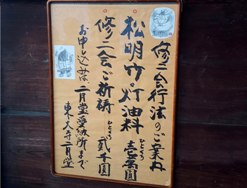 修二会行法のご案内
松明灯油料 ひとくち 壱萬円
修二会ご祈祷 ひとくち 弐千円
お申し込みは二月堂受納所まで
東大寺二月堂